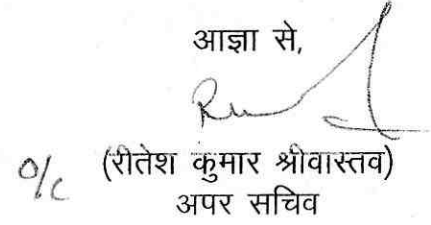 आज्ञा से,
O/c (रीतेश कुमार श्रीवास्तव)
अपर सचिव